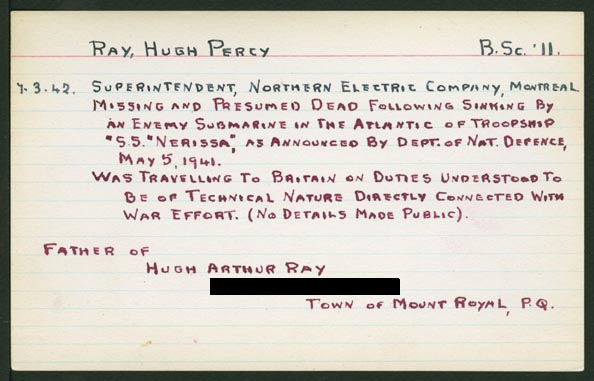 RAY, HUGH PERCY B.Sc. '11.
7.3.42. SUPERINTENDENT, NORTHERN ELECTRIC COMPANY, MONTREAL
MISSING AND PRESUMED DEAD FOLLOWING SINKING BY
AN ENEMY SUBMARINE IN THE ATLANTIC OF TROOPSHIP
"S.S. "NERISSA", AS ANNOUNCED BY DEPT. OF NAT. DEFENCE,
MAY 5, 1941.
WAS TRAVELLING TO BRITAIN ON DUTIES UNDERSTOOD TO
BE OF TECHNICAL NATURE DIRECTLY CONNECTED WITH
WAR EFFORT. (NO DETAILS MADE PUBLIC).
FATHER OF
HUGH ARTHUR RAY
TOWN OF MOUNT ROYAL, P.Q.